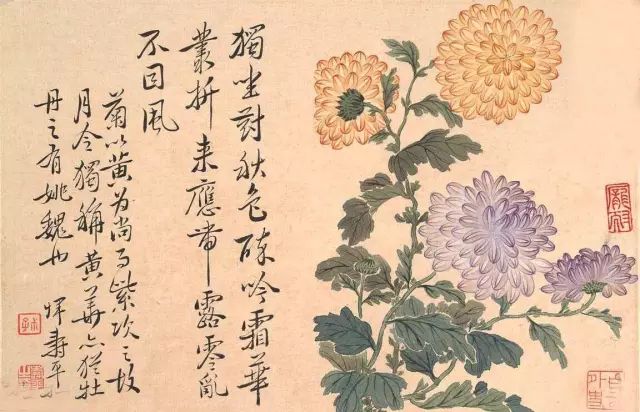 獨坐對秋色醉吟霜華
叢折来應帶露零亂
不因風
菊以黄为尚而紫次之故
月令獨稱黄華亦猶牡
丹之有姚魏也 惲壽平